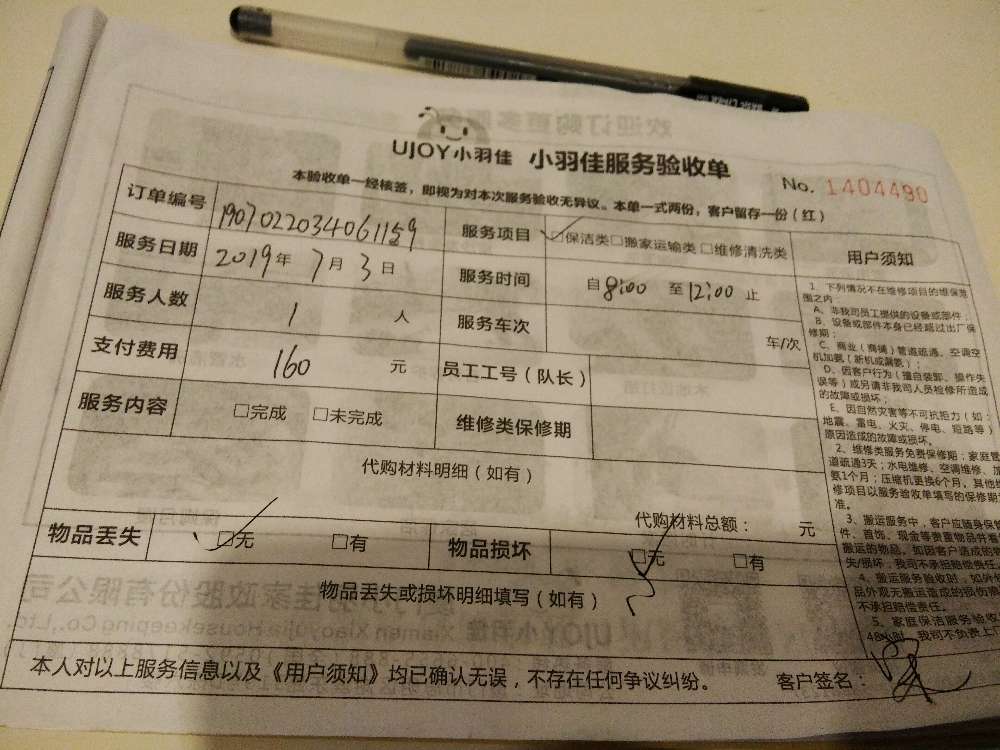 UJOY小羽佳 小羽佳服务验收单
No. 1404490
本验收单一经核签，即视为对本次服务验收无异议。本单一式两份，客户留存一份（红）
订单编号 1907022034061159 服务项目 □保洁类□搬家运输类□维修清洗类
服务日期 2019年7月3日 服务时间 自8:00至12:00止
服务人数 1人 服务车次 车/次
支付费用 160元 员工工号（队长）
服务内容 □完成 □未完成 维修类保修期
代购材料明细（如有）
代购材料总额： 元
物品丢失 □无 □有 物品损坏 □无 □有
物品丢失或损坏明细填写（如有）
本人对以上服务信息以及《用户须知》均已确认无误，不存在任何争议纠纷。 客户签名：
用户须知
1、下列情况不在维修项目的维保范
围之内：
A、非我司员工提供的设备或部件；
B、设备或部件本身已经超过出厂保
修期；
C、商业（商铺）管道疏通、空调空
机加氨（新机或漏氨）；
D、因客户行为（擅自装卸、操作失
误等）或另请非我司人员检修所造成
的故障或损坏；
E、因自然灾害等不可抗拒力（如：
地震、雷电、火灾、停电、短路等）
原因造成的故障或损坏。
2、维修类服务免费保修期：家庭管
道疏通3天；水电维修、空调维修、加
氨1个月；压缩机更换6个月，其他维
修项目以服务验收单填写的保修期
准。
3、搬运服务中，客户应随身保管
件、首饰、现金等贵重物品并看
搬运的物品。如因客户造成的物
失/损坏，我司不承担赔偿责任。
4、搬运服务验收时，如外包
品外观无搬运造成的损伤痕
不承担赔偿责任。
5、家庭保洁服务验收
48小时，我司不负责上